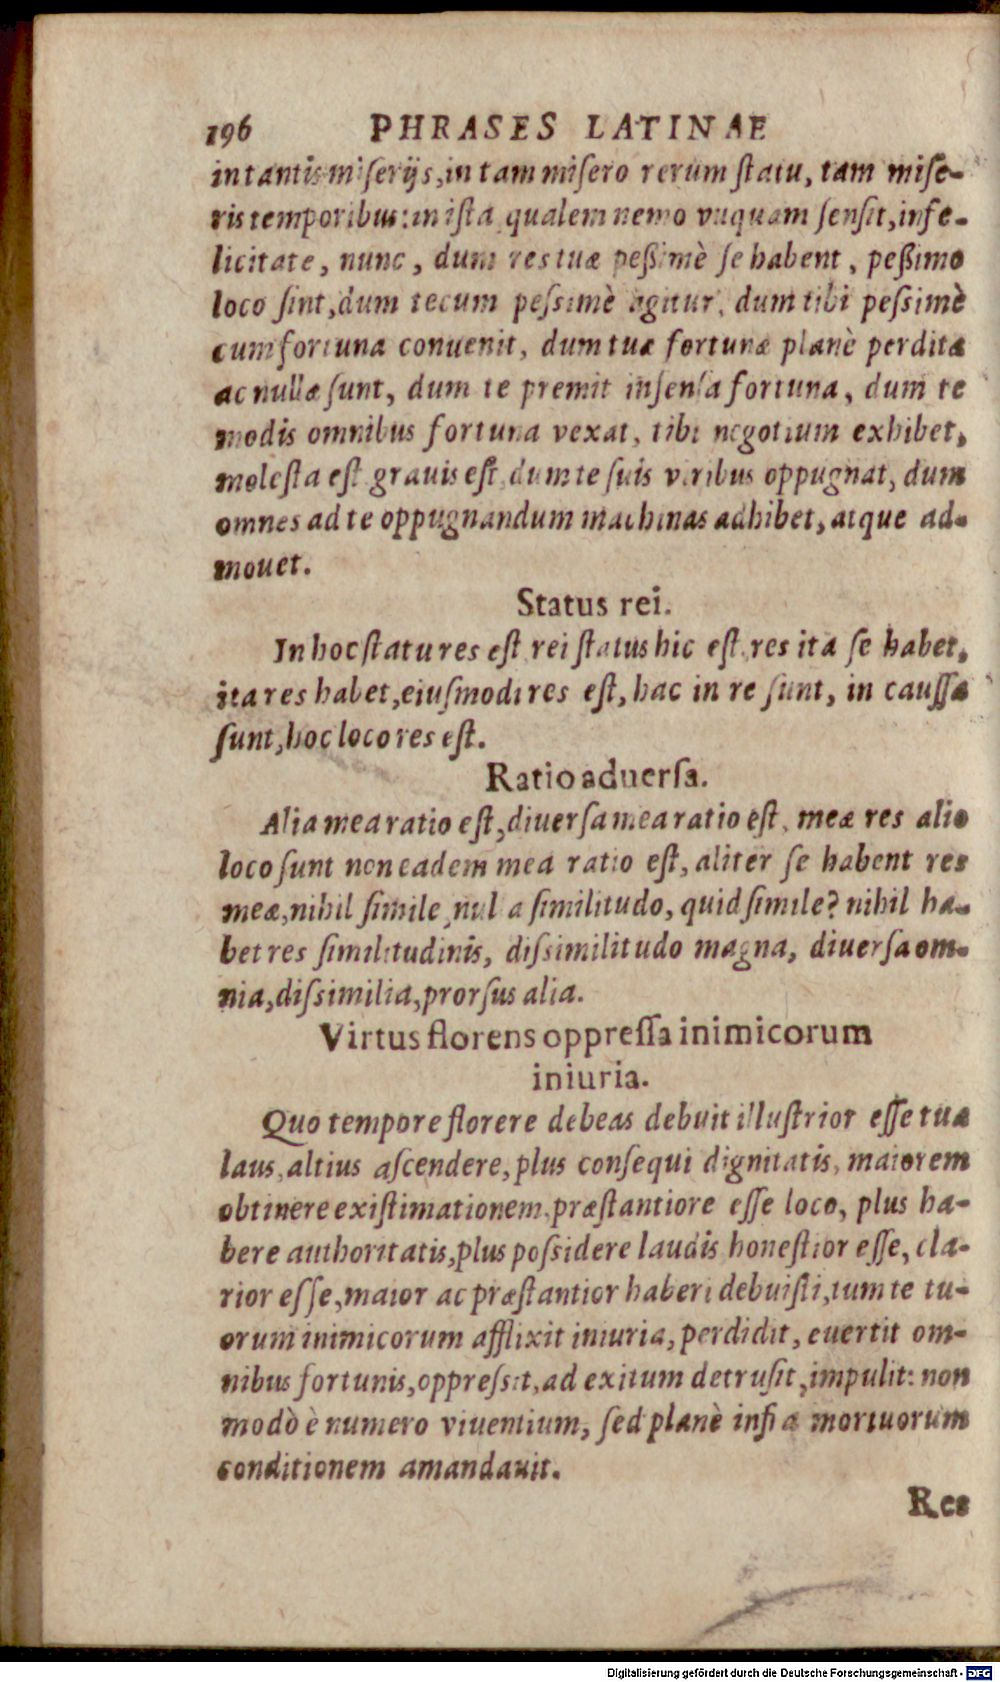 196 PHRASES LATINAE
in tantis miserijs, in tam misero rerum statu, tam mise-
ris temporibus: in ista qualem nemo vnquam sensit, infe-
licitate, nunc, dum res tuæ peßimè se habent, peßimo
loco sint, dum tecum pessimè agitur, dum tibi pessimè
cum fortuna conuenit, dum tuæ fortunæ planè perditæ
ac nullæ sunt, dum te premit infensa fortuna, dum te
modis omnibus fortuna vexat, tibi negotium exhibet,
molesta est grauis est, dum te suis viribus oppugnat, dum
omnes ad te oppugnandum machinas adhibet, atque ad-
mouet.
Status rei.
In hoc statu res est, rei status hic est, res ita se habet,
ita res habet, eiusmodi res est, hac in re sunt, in caussa
sunt, hoc loco res est.
Ratio aduersa.
Alia mea ratio est, diuersa mea ratio est, meæ res alio
loco sunt non eadem mea ratio est, aliter se habent res
meæ, nihil simile, nulla similitudo, quid simile? nihil ha-
bet res similitudinis, dissimilitudo magna, diuersa om-
nia, dissimilia, prorsus alia.
Virtus florens oppressa inimicorum
iniuria.
Quo tempore florere debeas debuit illustrior esse tua
laus, altius ascendere, plus consequi dignitatis, maiorem
obtinere existimationem, præstantiore esse loco, plus ha-
bere authoritatis, plus possidere laudis honestior esse, cla-
rior esse, maior ac præstantior haberi debuisti, tum te tu-
orum inimicorum afflixit iniuria, perdidit, euertit om-
nibus fortunis, oppressit, ad exitum detrusit, impulit: non
modò è numero viuentium, sed planè infra mortuorum
conditionem amandauit.
Res
Digitalisierung gefördert durch die Deutsche Forschungsgemeinschaft - DFG